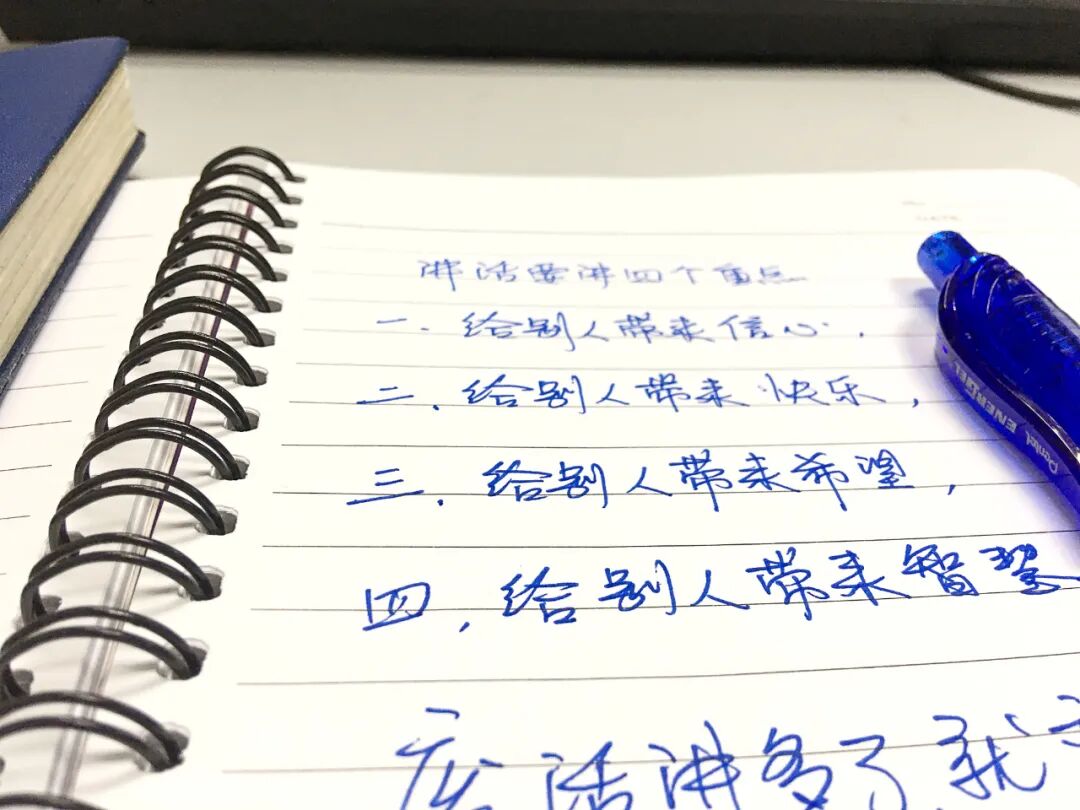 讲话要讲四个重点
一.给别人带来信心,
二.给别人带来快乐,
三.给别人带来希望,
四,给别人带来智慧
话讲多了就
Pentel ENERGEL